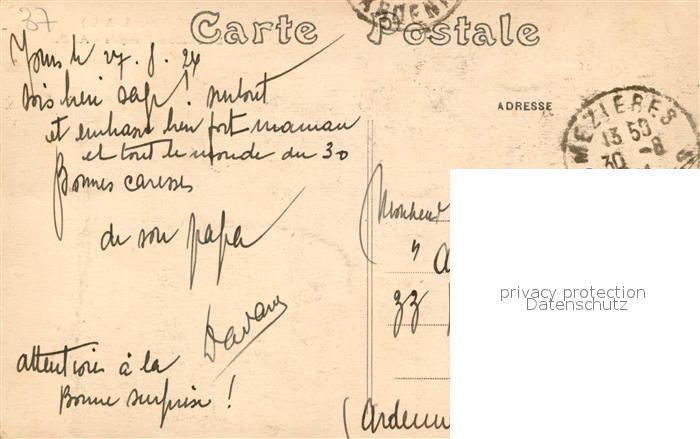 37
Carte Postale
le 27. 8. 24
sois bien sage! surtout
et embrasse bien fort maman
et tout le monde du 30
Bonnes caresses
de son papa
attentions à la
Bonne surprise!
ADRESSE
MEZIERES
13 50
30 -8
Monsieur
" A
ZZ
(Ardenn
privacy protection
Datenschutz